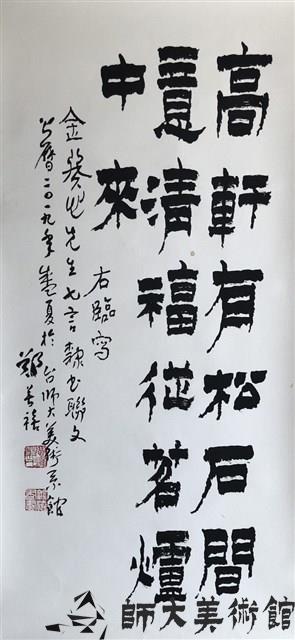 高軒有松石間
意清福從茗爐
中來
右臨寫
金先生七言隸書聯文
公曆二〇一九年盛夏於台師大美術系館
鄭善禧
師大美術館